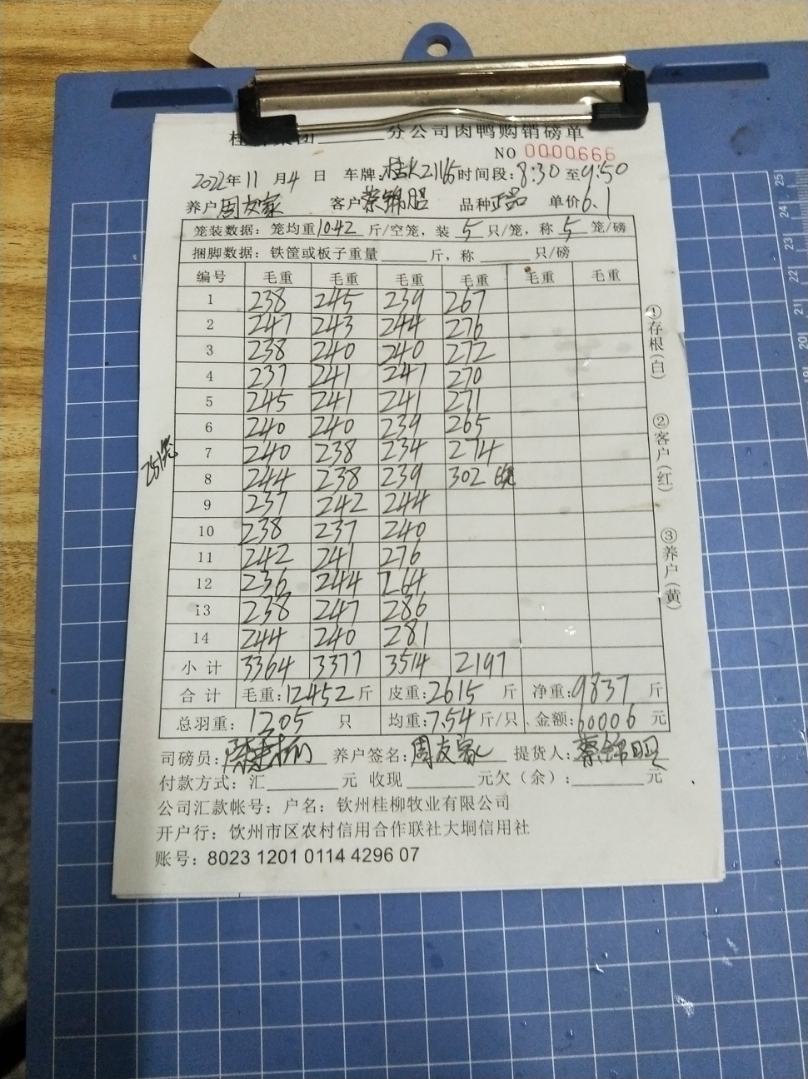 分公司肉鸭购销磅单
NO 0000666
2022年11月4日 车牌: 时间段:8:30至9:50
养户周友家 客户 品种正品 单价6.1
笼装数据: 笼均重10.42斤/空笼, 装5只/笼, 称5笼/磅
捆脚数据: 铁筐或板子重量____斤, 称____只/磅
编号 毛重 毛重 毛重 毛重 毛重 毛重
1 238 245 239 267
2 247 243 244 276
3 238 240 240 272
4 237 241 247 270
5 245 241 241 271
6 240 240 239 265
7 240 238 234 274
8 244 238 239 302
9 237 242 244
10 238 237 240
11 242 241 276
12 236 244 264
13 238 247 286
14 244 240 281
小计 3364 3377 3514 2197
合计 毛重:12452斤 皮重:2615斤 净重:9837斤
总羽重: 1205 只 均重:7.54斤/只 金额:60006元
司磅员: 养户签名:周友家 提货人:
付款方式: 汇____元 收现____元欠(余):____元
公司汇款帐号: 户名: 钦州桂柳牧业有限公司
开户行: 钦州市区农村信用合作联社大垌信用社
账号: 8023 1201 0114 4296 07
①存根(白)
②客户(红)
③养户(黄)